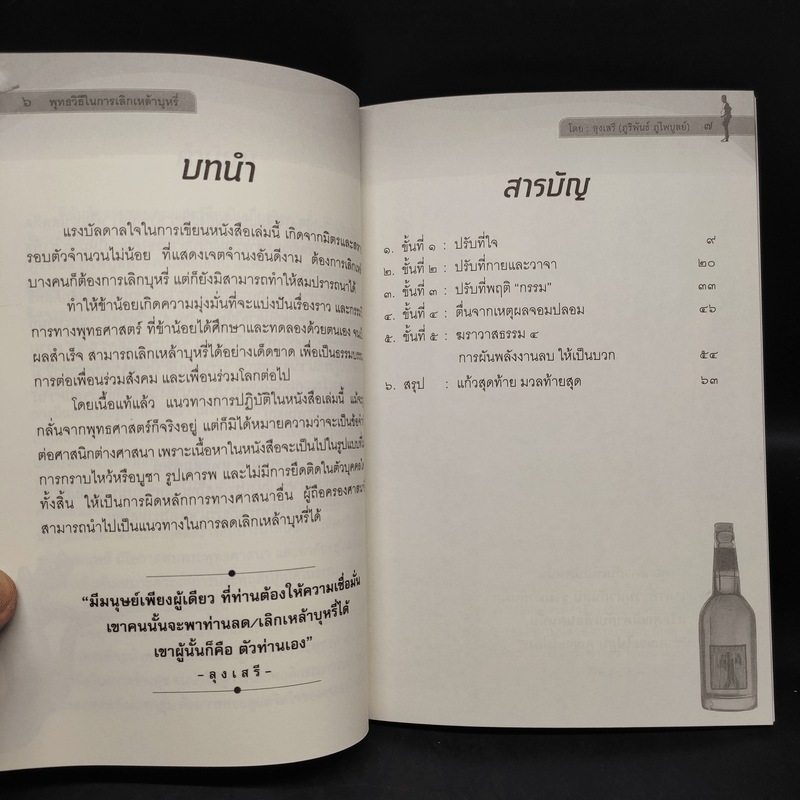 ๖ พุทธวิธีในการเลิกเหล้าบุหรี่
บทนำ
แรงบัลดาลใจในการเขียนหนังสือเล่มนี้ เกิดจากมิตรและสหาย
รอบตัวจำนวนไม่น้อย ที่แสดงเจตจำนงอันดีงาม ต้องการเลิกเหล้า
บางคนก็ต้องการเลิกบุหรี่ แต่ก็ยังมิสามารถทำให้สมปรารถนาได้
ทำให้ข้าน้อยเกิดความมุ่งมั่นที่จะแบ่งปันเรื่องราว และกรรมวิธี
การทางพุทธศาสตร์ ที่ข้าน้อยได้ศึกษาและทดลองด้วยตนเอง
ผลสำเร็จ สามารถเลิกเหล้าบุหรี่ได้อย่างเด็ดขาด เพื่อเป็นธรรม
การต่อเพื่อนร่วมสังคม และเพื่อนร่วมโลกต่อไป
โดยเนื้อแท้แล้ว แนวทางการปฏิบัติในหนังสือเล่มนี้ แม้จะ
กลั่นจากพุทธศาสตร์ก็จริงอยู่ แต่ก็มิได้หมายความว่าจะเป็น
ต่อศาสนิกต่างศาสนา เพราะเนื้อหาในหนังสือจะเป็นไปในรูปแบบ
การกราบไหว้หรือบูชา รูปเคารพ และไม่มีการยึดติดในตัวบุคคล
ทั้งสิ้น ให้เป็นการผิดหลักการทางศาสนาอื่น ผู้ถือครองศาสนา
สามารถนำไปเป็นแนวทางในการลดเลิกเหล้าบุหรี่ได้
“มีมนุษย์เพียงผู้เดียว ที่ท่านต้องให้ความเชื่อมั่น
เขาคนนั้นจะพาท่านลด/เลิกเหล้าบุหรี่ได้
เขาผู้นั้นก็คือ ตัวท่านเอง”
- ลุงเสรี -
โดย : ลุงเสรี (ภูริพันธ์ ภูไพบูลย์) ๗
สารบัญ
๑. ขั้นที่ ๑ : ปรับที่ใจ ๙
๒. ขั้นที่ ๒ : ปรับที่กายและวาจา ๒๐
๓. ขั้นที่ ๓ : ปรับที่พฤติ “กรรม” ๓๓
๔. ขั้นที่ ๔ : ตื่นจากเหตุผลจอมปลอม ๔๖
๕. ขั้นที่ ๕ : ฆราวาสธรรม ๔
การผันพลังงานลบ ให้เป็นบวก ๕๔
๖. สรุป : แก้วสุดท้าย มวลท้ายสุด ๖๓